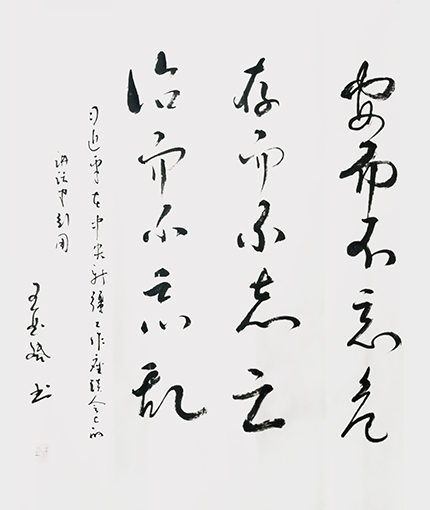 安而不忘危
存而不忘亡
治而不忘乱
习近平在中央新疆工作座谈会上的
讲话中引用
王 书